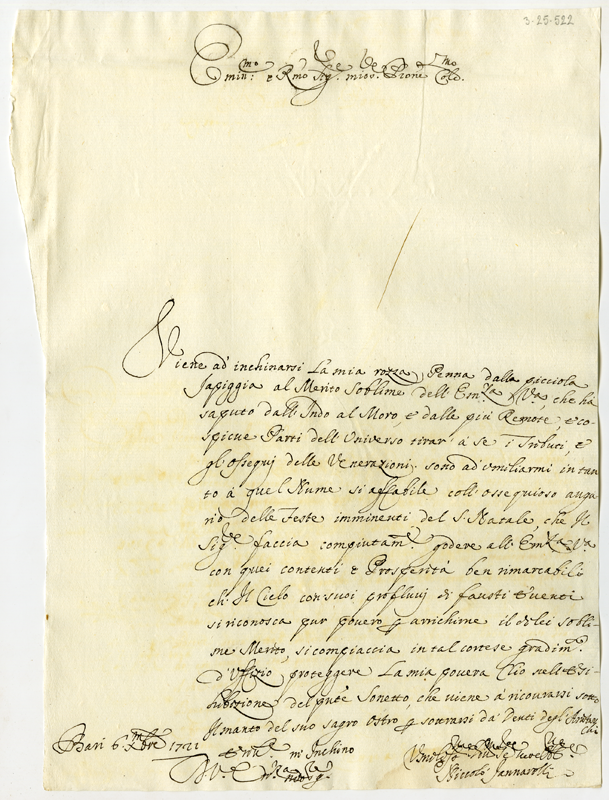 3-25-522
Emin:mo e Rmo Sigre mio, e Prone Colmo.
Viene ad' inchinarsi La mia rozza, Penna dalla picciola
Japiggia al Merito Sublime dell' Emza Vra, che hà
saputo dall' Indo al Moro, e dalle più Remote, e co-
spicue Parti dell' Universo tirar' à se i Tributi, e
gl' ossequj delle Venerazioni; sono ad' umiliarmi in tan
to à quel Nume si affabile coll' ossequioso augu
rio delle Feste imminenti del S. Natale, che Il
Sigre faccia compiutamte godere all' Emza Va
con quei contenti e Prosperità ben rimarcabili
ch' Il Cielo con suoi profluvj di fausti Eventi
si riconosca pur povero p arrichirne il di lei subli-
me Merito, si compiaccia in tal cortese gradimto
d' Uffizio proteggere La mia povera Clio nell' Esi-
bizione del pnte Sonetto, che viene à ricovrarsi sotto
Il manto del suo sagro Ostro p sottrarsi da' Denti degl' Aristarchi
e mentre m' Inchino
Bari 6 Xbre 1721
Di V. Emza Rma
Niccolò Jannarelli